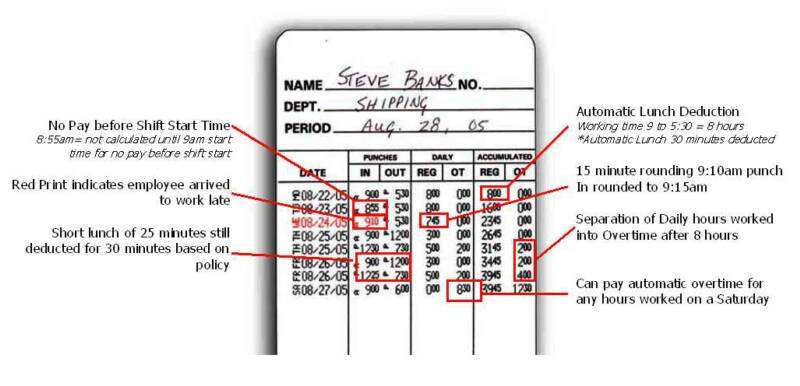 NAME STEVE BANKS NO.
DEPT. SHIPPING
PERIOD AUG. 28, 05
PUNCHES DAILY ACCUMULATED
DATE IN OUT REG OT REG OT
08/22/05 900 530 800 000 800 000
08/23/05 855 530 800 000 1600 000
08/24/05 910 530 745 000 2345 000
08/25/05 900 1200 300 000 2645 000
08/25/05 1230 730 500 200 3145 200
08/26/05 900 1200 300 000 3445 200
08/26/05 1225 730 500 200 3945 400
08/27/05 900 600 000 830 3945 1230
No Pay before Shift Start Time
8:55am= not calculated until 9am start
time for no pay before shift start
Red Print indicates employee arrived
to work late
Short lunch of 25 minutes still
deducted for 30 minutes based on
policy
Automatic Lunch Deduction
Working time 9 to 5:30 = 8 hours
*Automatic Lunch 30 minutes deducted
15 minute rounding 9:10am punch
In rounded to 9:15am
Separation of Daily hours worked
into Overtime after 8 hours
Can pay automatic overtime for
any hours worked on a Saturday